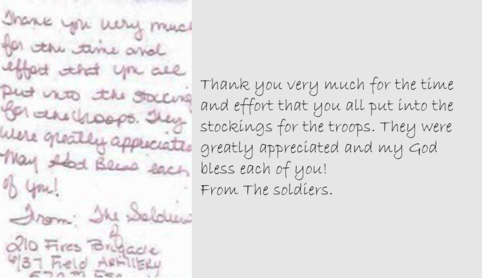 Thank you very much
for the time and
effort that you all
put into the stocking
for the troops. They
were greatly appreciate
May God Bless each
of you!
From: The Soldiers
of
210 Fires Brigade
6/37 Field Artillery
Thank you very much for the time
and effort that you all put into the
stockings for the troops. They were
greatly appreciated and my God
bless each of you!
From The soldiers.